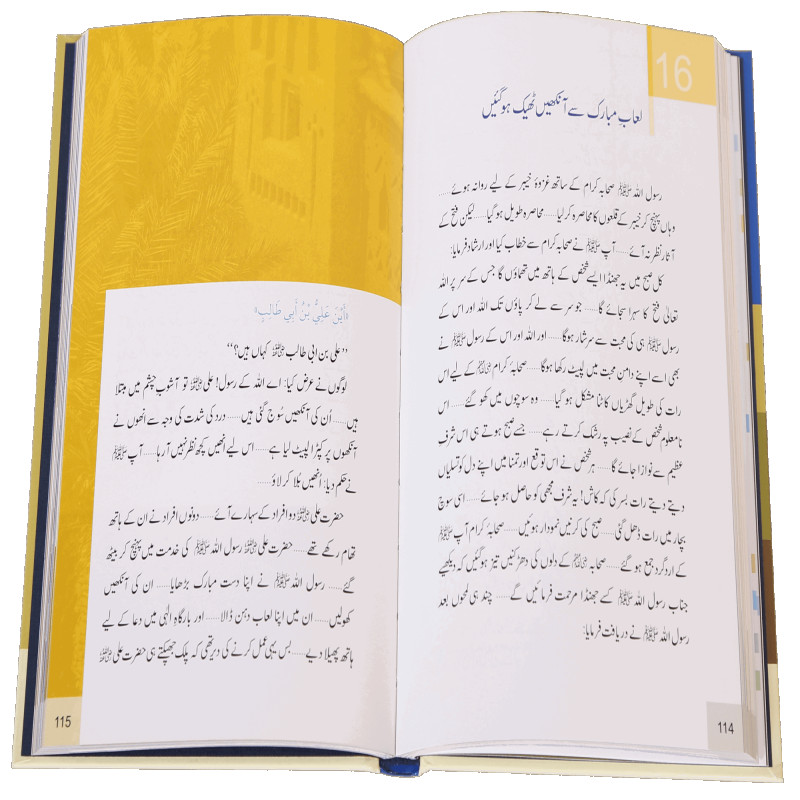 16
لعابِ مبارک سے آنکھیں ٹھیک ہوگئیں
رسول اللہ ﷺ صحابہ کرام کے ساتھ غزوۂ خیبر کے لیے روانہ ہوئے......
وہاں پہنچ کر خیبر کے قلعوں کا محاصرہ کرلیا...... محاصرہ طویل ہوگیا...... لیکن فتح کے
آثار نظر نہ آئے...... آپ ﷺ نے صحابہ کرام سے خطاب کیا اور ارشاد فرمایا:
کل صبح میں یہ جھنڈا ایسے شخص کے ہاتھ میں تھماؤں گا جس کے سر پر اللہ
تعالیٰ فتح کا سہرا سجائے گا...... جو سر سے لے کر پاؤں تک اللہ اور اس کے
رسول ﷺ ہی کی محبت سے سرشار ہوگا...... اور اللہ اور اس کے رسول ﷺ نے
بھی اسے اپنے دامن محبت میں لپیٹ رکھا ہوگا...... صحابہ کرام ﷢ کے لیے اس
رات کی طویل گھڑیاں کاٹنا مشکل ہوگیا...... وہ سوچوں میں کھو گئے...... اس
نامعلوم شخص کے نصیب پہ رشک کرتے رہے...... جسے صبح ہوتے ہی اس شرف
عظیم سے نوازا جائے گا...... ہر شخص نے اس توقع اور تمنا میں اپنے دل کو تسلیاں
دیتے دیتے رات بسر کی کہ کاش! یہ شرف مجھی کو حاصل ہو جائے...... اسی سوچ
بچار میں رات ڈھل گئی...... صبح کی کرنیں نمودار ہوئیں...... صحابہ کرام آپ ﷺ
کے اردگرد جمع ہوگئے...... صحابہ ﷢ کے دلوں کی دھڑکنیں تیز ہوگئیں کہ دیکھیے
جناب رسول اللہ ﷺ کسے جھنڈا مرحمت فرمائیں گے...... چند ہی لمحوں بعد
رسول اللہ ﷺ نے دریافت فرمایا:
114
«أَيْنَ عَلِيُّ بْنُ أَبِي طَالِبٍ»
’’علی بن ابی طالب ﷜ کہاں ہیں؟‘‘
لوگوں نے عرض کیا: اے اللہ کے رسول! علی ﷜ تو آشوبِ چشم میں مبتلا
ہیں...... اُن کی آنکھیں سُوج گئی ہیں...... درد کی شدت کی وجہ سے انھوں نے
آنکھوں پر کپڑا لپیٹ لیا ہے...... اس لیے انھیں کچھ نظر نہیں آرہا...... آپ ﷺ
نے حکم دیا: انھیں بُلا کر لاؤ......
حضرت علی ﷜ دو افراد کے سہارے آئے...... دونوں افراد نے ان کے ہاتھ
تھام رکھے تھے...... حضرت علی ﷜ رسول اللہ ﷺ کی خدمت میں پہنچ کر بیٹھ
گئے...... رسول اللہ ﷺ نے اپنا دست مبارک بڑھایا...... ان کی آنکھیں
کھولیں...... ان میں اپنا لعاب دہن ڈالا...... اور بارگاہِ الٰہی میں دعا کے لیے
ہاتھ پھیلا دیے...... بس یہی عمل کرنے کی دیر تھی کہ پلک جھپکتے ہی حضرت علی ﷜
115